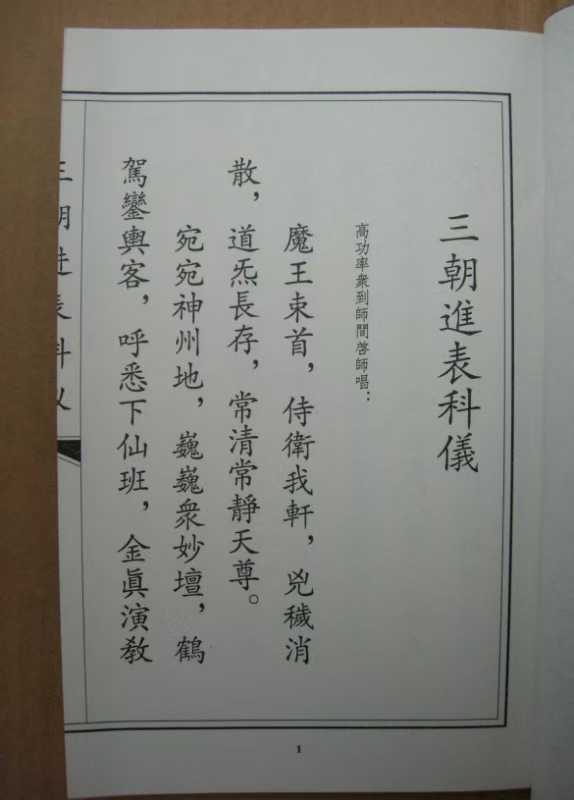 三朝進表科儀
高功率衆到師間啓師唱：
魔王束首，侍衛我軒，兇穢消
散，道炁長存，常清常靜天尊。
宛宛神州地，巍巍衆妙壇，鶴
駕鑾輿客，呼悉下仙班，金眞演教
三朝進表科儀
1